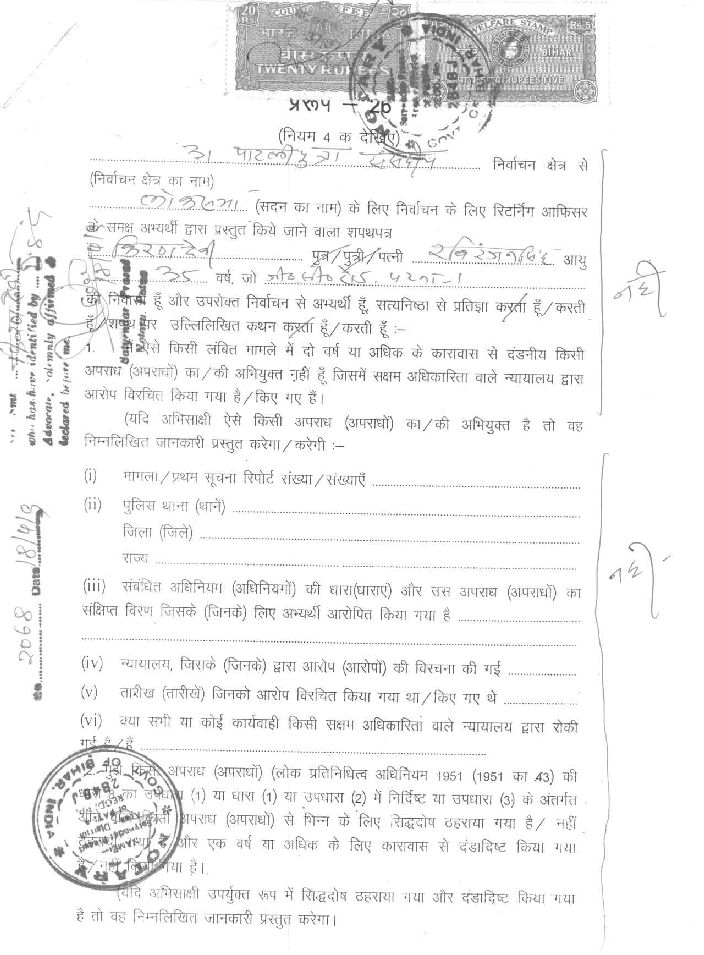 20
RS
COURT FEE
20
भारत
बीस रुपये
TWENTY RUPEES
WELFARE STAMP
RS.5
BIHAR
RUPEES FIVE
NOTARY
BIHAR, INDIA
GOVT. OF
2848-J
प्ररूप – 26
(नियम 4 क देखिए)
31 पाटलीपुत्रा संसदीय निर्वाचन क्षेत्र से
(निर्वाचन क्षेत्र का नाम)
लोकसभा (सदन का नाम) के लिए निर्वाचन के लिए रिटर्निंग आफिसर
के समक्ष अभ्यर्थी द्वारा प्रस्तुत किये जाने वाला शपथपत्र
किरण देवी पुत्र/पुत्री/पत्नी रविरंजन सिंह आयु
35 वर्ष, जो जी० पी० रोड, पटना-1
का निवासी हूँ और उपरोक्त निर्वाचन से अभ्यर्थी हूँ, सत्यनिष्ठा से प्रतिज्ञा करता हूँ/करती
हूँ/शपथ पर उल्लिलिखित कथन करता हूँ/करती हूँ :–
नहीं
1. ऐसे किसी लंबित मागले में दो वर्ष या अधिक के कारावास से दंडनीय किसी
अपराध (अपराधों) का/की अभियुक्त नहीं हूँ जिसमें सक्षम अधिकारिता वाले न्यायालय द्वारा
आरोप विरचित किया गया है/किए गए हैं।
(यदि अभिसाक्षी ऐसे किसी अपराध (अपराधों) का/की अभियुक्त है तो वह
निम्नलिखित जानकारी प्रस्तुत करेगा/करेगी :–
(i) मागला/प्रथम सूचना रिपोर्ट संख्या/संख्याएँ
(ii) पुलिस थाना (थानें)
जिला (जिले)
राज्य
(iii) संबंधित अधिनियग (अधिनियगों) की धारा(धाराएं) और उस अपराध (अपराधों) का
संक्षिप्त विरण जिसके (जिनके) लिए अभ्यर्थी आरोपित किया गया है
नहीं
(iv) न्यायालय, जिसके (जिनके) द्वारा आरोप (आरोपों) की विरचना की गई
(v) तारीख (तारीखें) जिनको आरोप विरचित किया गया था/किए गए थे
(vi) क्या सभी या कोई कार्यवाही किसी सक्षग अधिकारिता वाले न्यायालय द्वारा रोकी
गई है/हैं
2. अपराध (अपराधों) (लोक प्रतिनिधित्व अधिनियम 1951 (1951 का 43) की
का उपधारा (1) या धारा (1) या उपधारा (2) में निर्दिष्ट या उपधारा (3) के अंतर्गत
अपराध (अपराधों) से भिन्न के लिए सिद्धदोष ठहराया गया है/ नहीं
और एक वर्ष या अधिक के लिए कारावास से दंडादिष्ट किया गया
गया है।
(यदि अभिसाक्षी उपर्युक्त रूप में सिद्धदोष ठहराया गया और दंडादिष्ट किया गया
है तो वह निम्नलिखित जानकारी प्रस्तुत करेगा।
who has/have identified by
Advocate, solemnly affirmed &
declared before me.
Satyendar Prasad
Notary, Patna
No. 2068 Date 18/4/9
NOTARY
GOVT. OF BIHAR, INDIA
2848-J